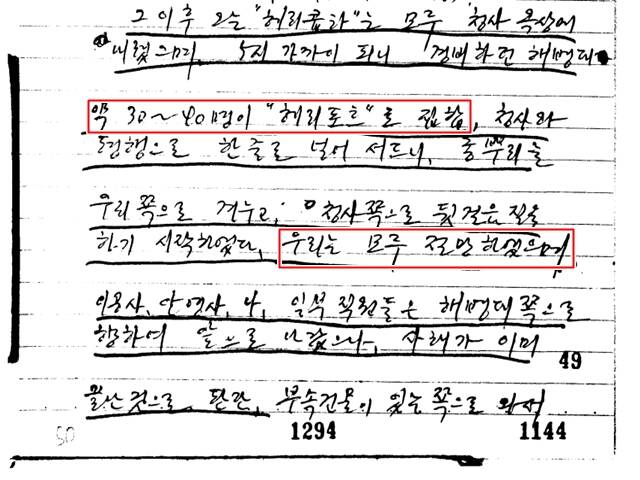 그 이후 오는 "헤리콥타"는 모두 청사 옥상에
내렸으며, 5시 가까이 되니 경비하던 해병대
약 30~40명이 "헤리포트"로 집합, 청사와
평행으로 한줄로 널어 서드니, 총뿌리를
우리쪽으로 겨누고, 청사쪽으로 뒷걸음질을
하기 시작하였다. 우리는 모두 절망하였으며
이용사, 안영사, 나, 일부 직원들은 해병대 쪽으로
향하여 앞으로 나갔으나, 사태가 이미
49
끝난것으로 판단, 부속건물이 있는 쪽으로 와서
50
1294 1144